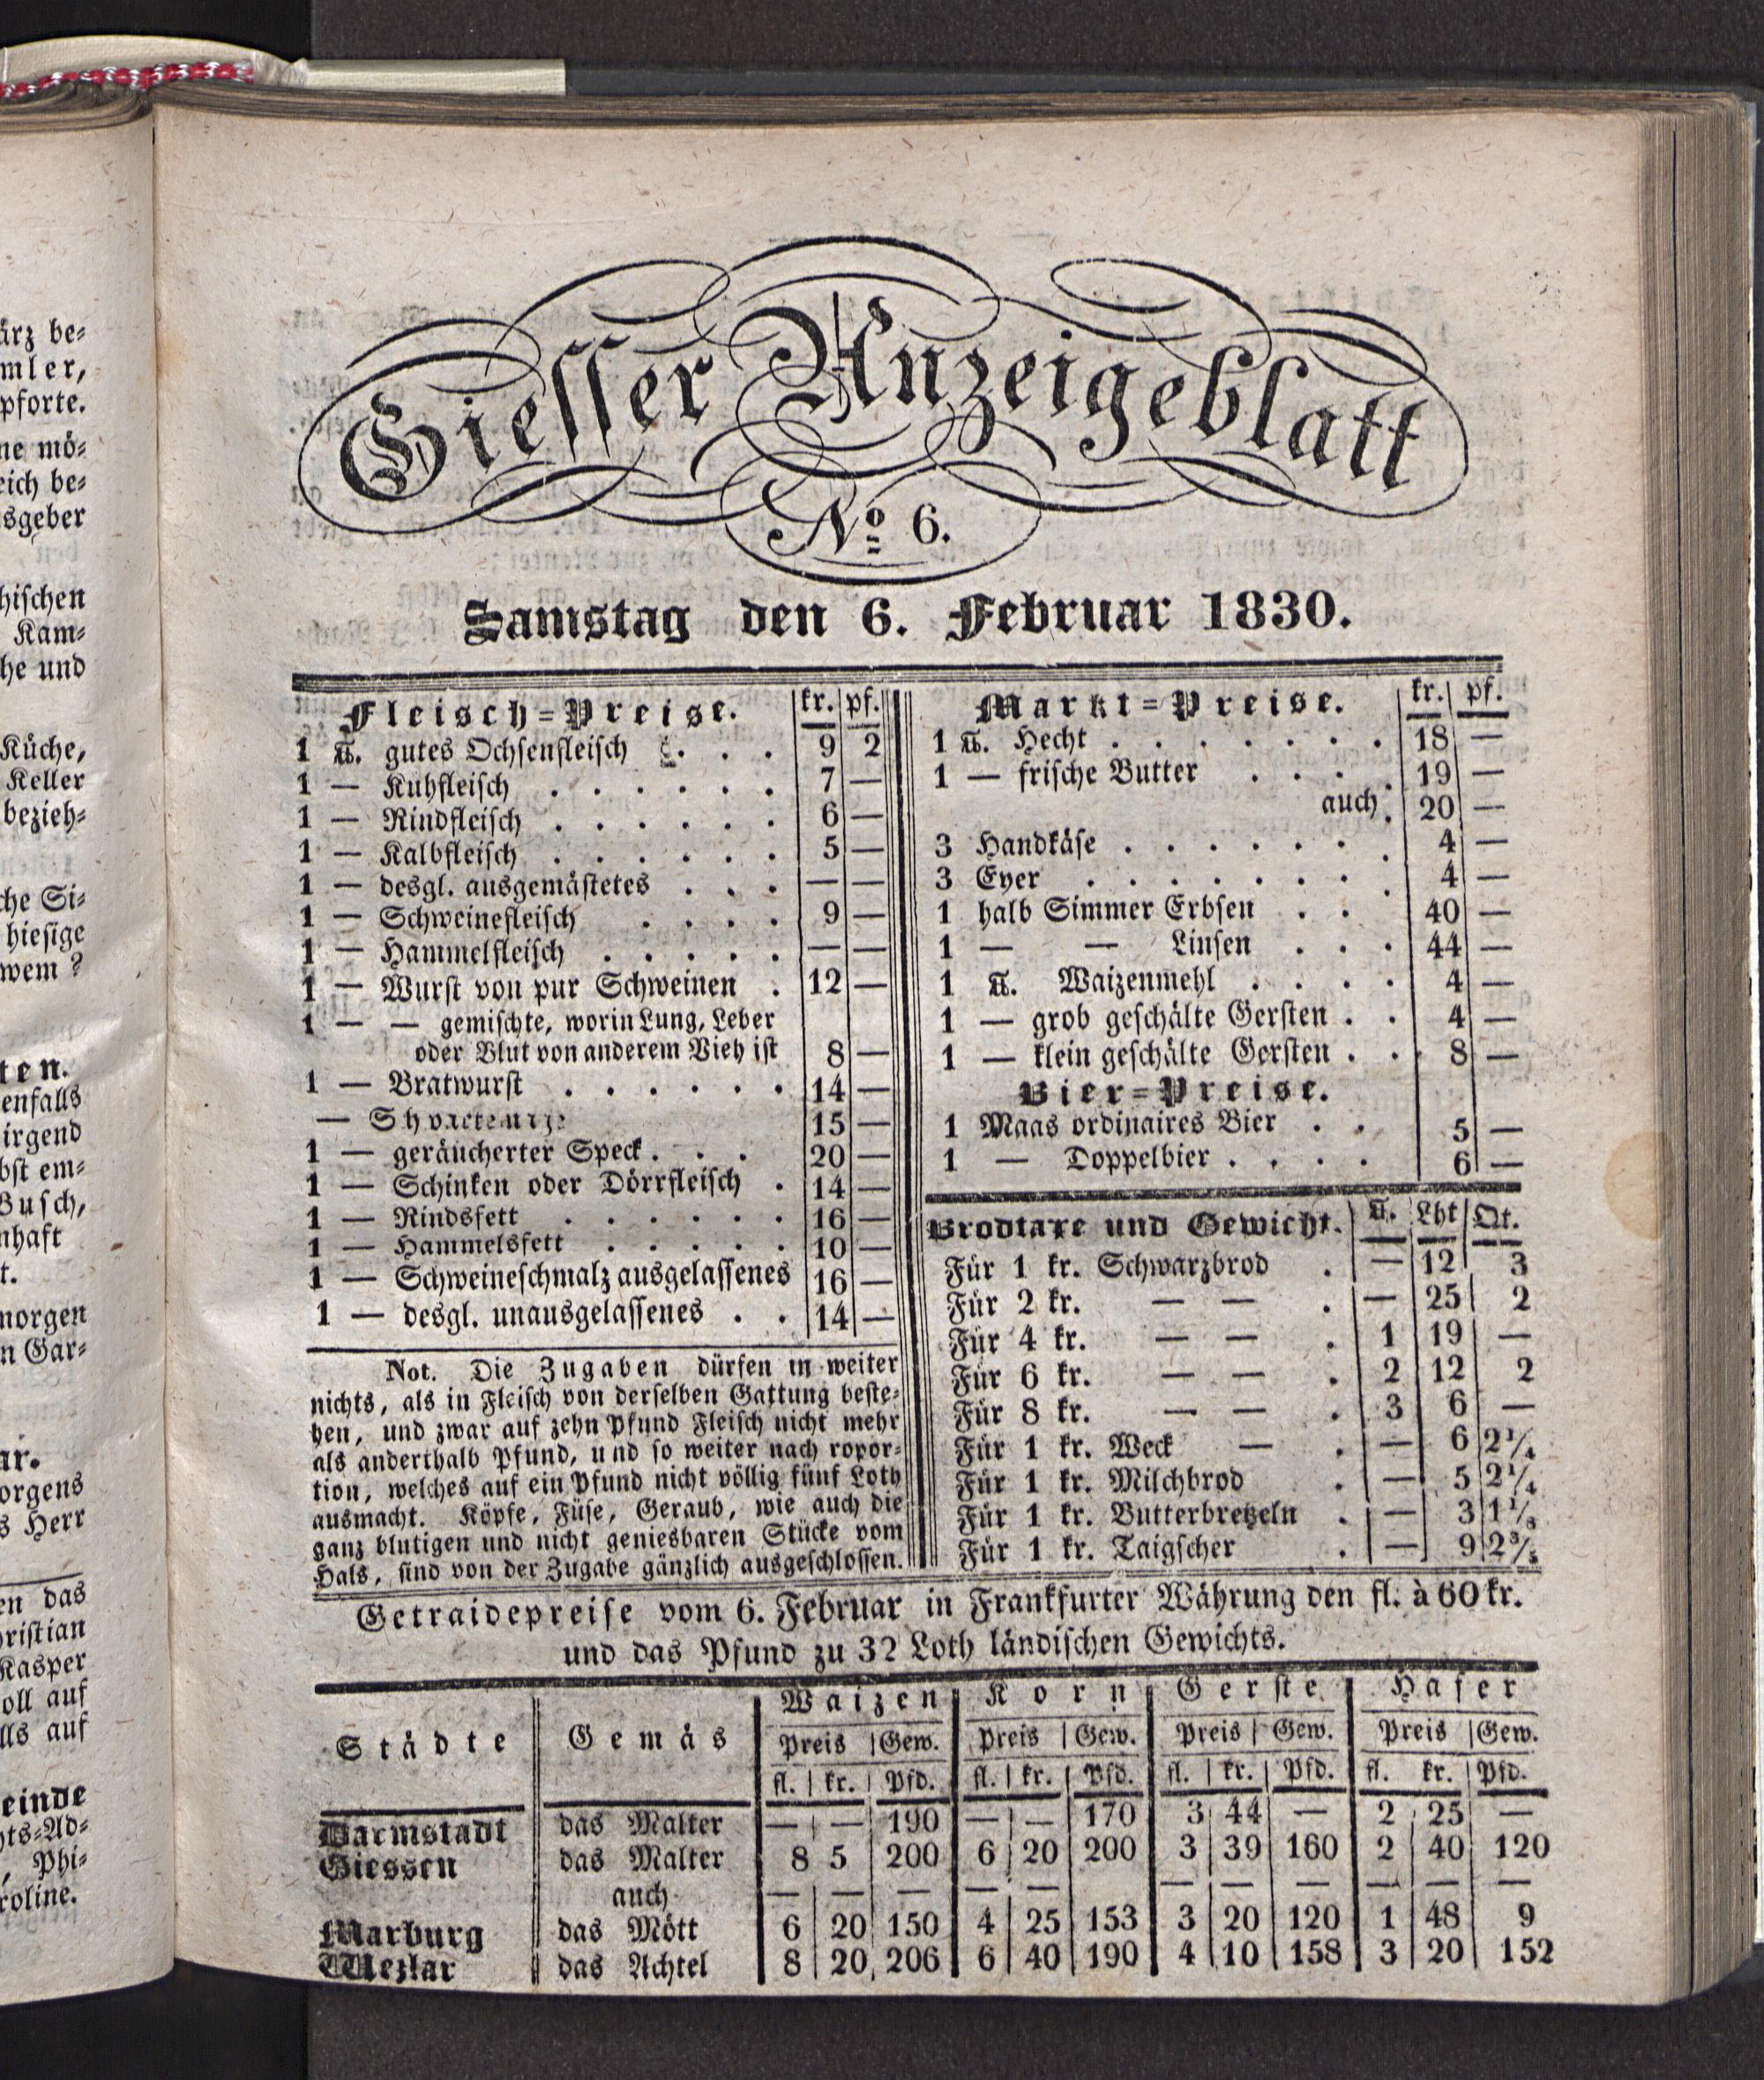 ärz be⸗
mler,
pforte.
ne mö⸗
eich be⸗
sgeber
hischen
Kam⸗
he und
Küche,
Keller
bezieh⸗
che Si⸗
hiesige
wem?
ten.
enfalls
irgend
bst em⸗
Busch,
nhaft
t.
morgen
n Gar⸗
ar.
orgens
s Herr
en das
ristian
Kasper
oll auf
lls auf
einde
hts⸗Ad⸗
, Phi⸗
roline.
Giesser Anzeigeblatt
No 6.
Samstag den 6. Februar 1830.
Fleisch⸗Preise. kr. pf.
1 ℔. gutes Ochsenfleisch . . . 9 2
1 — Kuhfleisch . . . . . . 7 —
1 — Rindfleisch . . . . . . 6 —
1 — Kalbfleisch . . . . . . 5 —
1 — desgl. ausgemästetes . . . — —
1 — Schweinefleisch . . . . 9 —
1 — Hammelfleisch . . . . . — —
1 — Wurst von pur Schweinen . 12 —
1 — — gemischte, worin Lung, Leber
oder Blut von anderem Vieh ist 8 —
1 — Bratwurst . . . . . . 14 —
— 15 —
1 — geräucherter Speck . . . 20 —
1 — Schinken oder Dörrfleisch . 14 —
1 — Rindsfett . . . . . . 16 —
1 — Hammelsfett . . . . . 10 —
1 — Schweineschmalz ausgelassenes 16 —
1 — desgl. unausgelassenes . . 14 —
Not. Die Zugaben dürfen in weiter
nichts, als in Fleisch von derselben Gattung beste⸗
hen, und zwar auf zehn Pfund Fleisch nicht mehr
als anderthalb Pfund, und so weiter nach ropor⸗
tion, welches auf ein Pfund nicht völlig fünf Loth
ausmacht. Köpfe, Füse, Geraub, wie auch die
ganz blutigen und nicht geniesbaren Stücke vom
Hals, sind von der Zugabe gänzlich ausgeschlossen.
Markt⸗Preise. kr. pf.
1 ℔. Hecht . . . . . . . 18 —
1 — frische Butter . . . . 19 —
auch . 20 —
3 Handkäse . . . . . . . 4 —
3 Eyer . . . . . . . . 4 —
1 halb Simmer Erbsen . . 40 —
1 — — Linsen . . . 44 —
1 ℔. Waizenmehl . . . . 4 —
1 — grob geschälte Gersten . . 4 —
1 — klein geschälte Gersten . . 8 —
Bier⸗Preise.
1 Maas ordinaires Bier . . 5 —
1 — Doppelbier . . . . 6 —
Brodtaxe und Gewicht. ℔. Lht Qt.
Für 1 kr. Schwarzbrod . — 12 3
Für 2 kr. — — . — 25 2
Für 4 kr. — — . 1 19 —
Für 6 kr. — — . 2 12 2
Für 8 kr. — — . 3 6 —
Für 1 kr. Weck — . — 6 2¼
Für 1 kr. Milchbrod . — 5 2¼
Für 1 kr. Butterbretzeln . — 3
Für 1 kr. Taigscher . — 9
Getraidepreise vom 6. Februar in Frankfurter Währung den fl. à 60 kr.
und das Pfund zu 32 Loth ländischen Gewichts.
Städte Gemäs Waizen Korn Gerste Hafer
Preis Gew. Preis Gew. Preis Gew. Preis Gew.
fl. kr. Pfd. fl. kr. Pfd. fl. kr. Pfd. fl. kr. Pfd.
Darmstadt das Malter — — 190 — — 170 3 44 — 2 25 —
Giessen das Malter 8 5 200 6 20 200 3 39 160 2 40 120
auch — — — — — — — — — — —
Marburg das Mött 6 20 150 4 25 153 3 20 120 1 48 9
Wezlar das Achtel 8 20 206 6 40 190 4 10 158 3 20 152